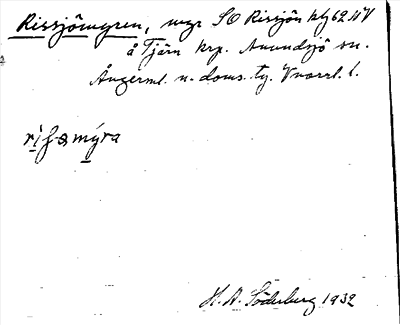 Rissjömyren, myr SO Rissjön kbl 62 NV
å Tjärn krp. Anundsjö sn.
Ångerml. n. doms. tg. Vnorrl. l.
H. A. Söderberg 1932